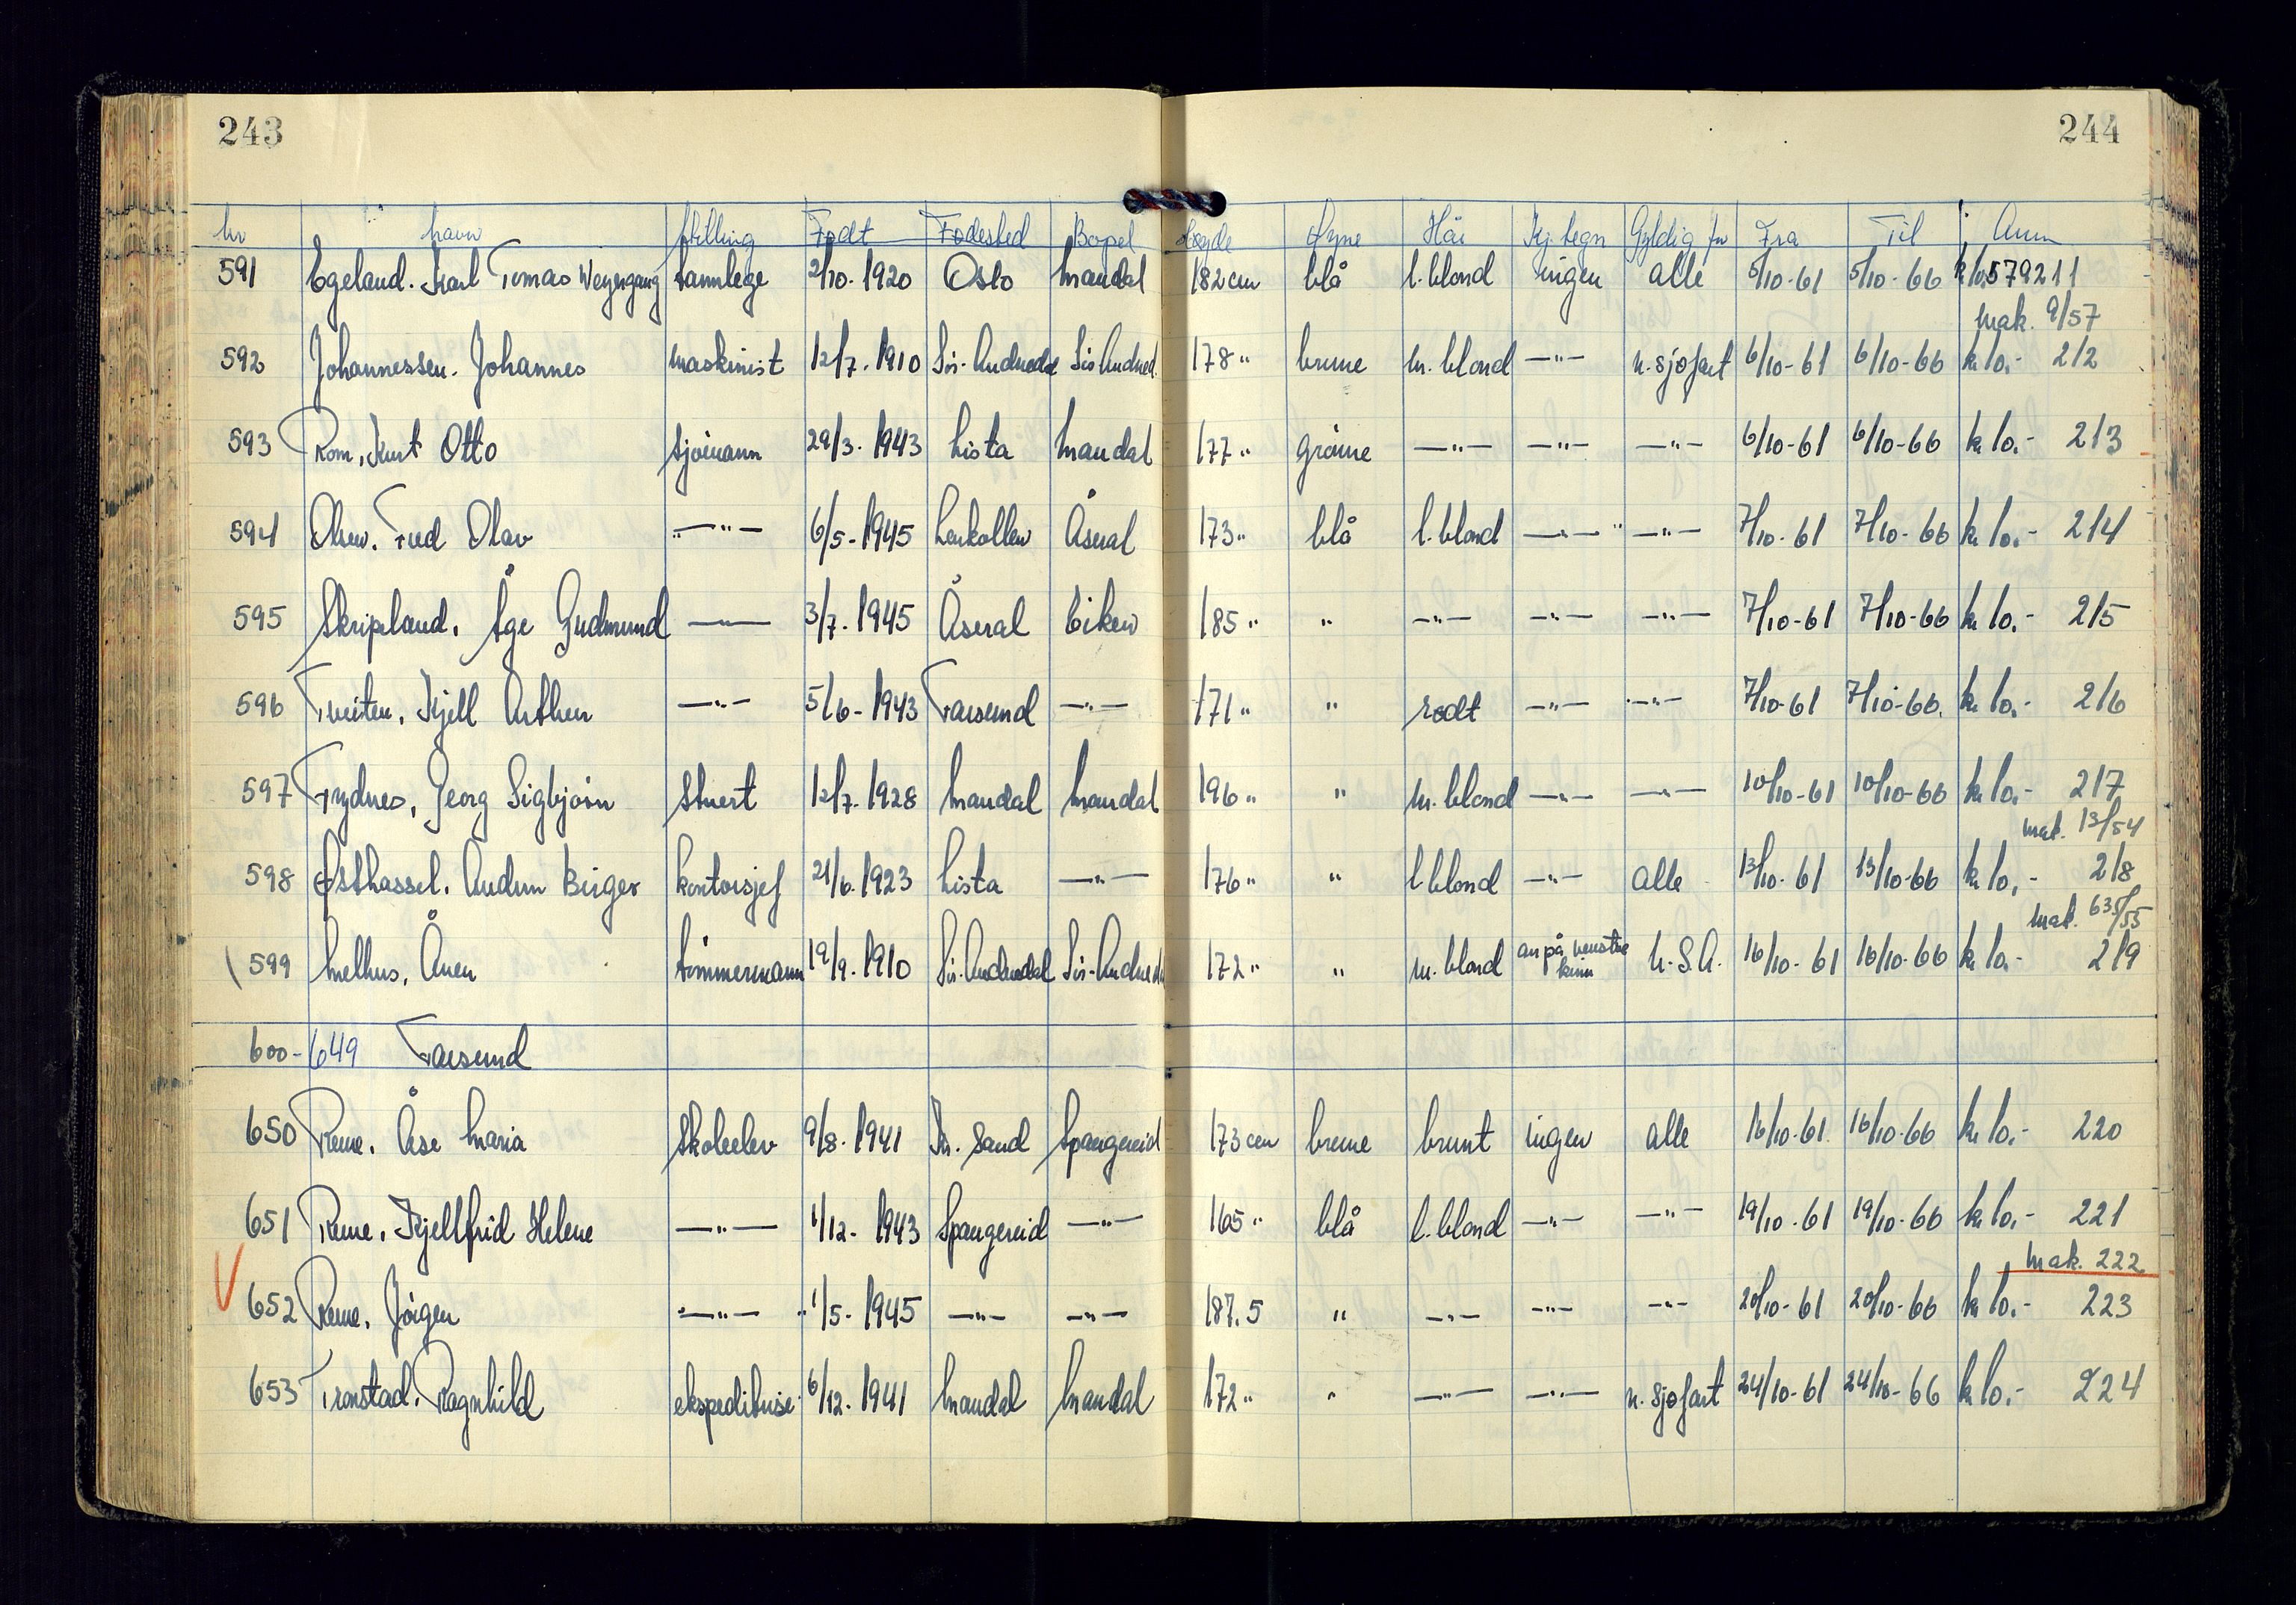 243
244
Nr Navn Stilling Født Fødested Bopel Høyde Øyne Hår Kj. tegn Gyldig for Fra Til Anm
591 Egeland. Karl Tomas Weyergang tannlege 2/10. 1920 Oslo Mandal 182 cm blå l. blond ingen alle 5/10-61 5/10-66 k 10. 579211
Mak. 9/57
592 Johannessen. Johannes maskinist 12/7. 1910 Sör-Audnedal Sör Audned. 178 " brune m. blond —"— u. sjøfart 6/10-61 6/10-66 k 10.- 212
593 Rom, Kurt Otto sjömann 29/3. 1943 Lista Mandal 177 " gröne —"— —"— —"— 6/10-61 6/10-66 k 10.- 213
594 Olsen. Fred Olav —"— 6/5-1945 Åseral 173 " blå l. blond —"— —"— 7/10-61 7/10-66 k 10.- 214
595 Skripeland. Åge Gudmund —"— 3/7. 1945 Åseral Eiken 185 " " —"— —"— —"— 7/10-61 7/10-66 k 10.- 215
596 Tveiten, Kjell Arthur —"— 5/6-1943 Farsund —"— 171 " " rødt —"— —"— 7/10-61 7/10-66. k 10.- 216
597 Frydnes, Georg Sigbjörn Stuert 12/7. 1928 Mandal Mandal 196 " " m. blond —"— —"— 10/10-61 10/10-66 k 10.- 217
Mak. 13/54
598 Østhassel. Audun Birger kontorsjef 21/6. 1923 Lista —"— 176 " " l blond —"— alle 13/10-61 13/10-66 k 10,- 218
Mak. 635/55
599 Melhus, Ånen tömmermann 19/9. 1910 Sör-Audnedal Sör-Audneda 172 " " m. blond arr på venstre kinn U.S.A. 16/10-61 16/10-66 k 10.- 219
600-649 Farsund
650 Reme. Åse Maria Skoleelev 9/8. 1941 Kr. Sand Spangereid 173 cm brune brunt ingen alle 16/10-61. 16/10-66 k 10.- 220
651 Reme. Kjellfrid Helene —"— 1/12. 1943 Spangereid —"— 165 " blå l. blond —"— —"— 19/10-61 19/10-66 k 10.- 221
Mak. 222
652 Reme. Jörgen —"— 1/5-1945 —"— —"— 187.5 " —"— —"— —"— 20/10-61 20/10-66 k 10.- 223
653 Tronstad. Ragnhild ekspeditrise 6/12. 1941 Mandal Mandal 172 " " —"— —"— u. sjøfart 24/10-61 24/10-66 k 10.- 224